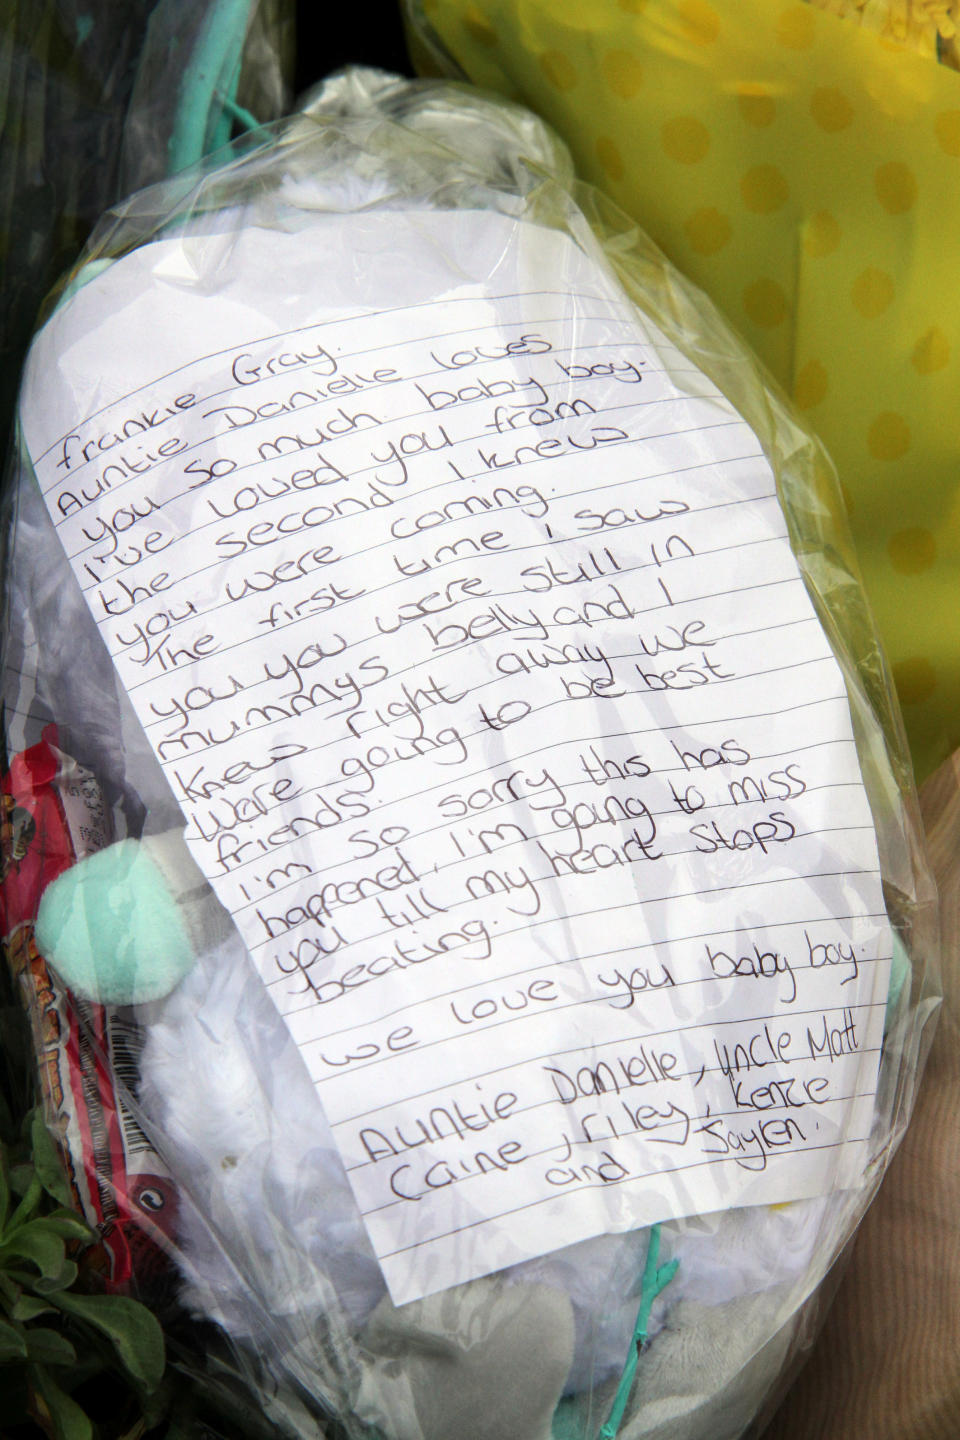 frankie Gray.
Auntie Danielle loves
you so much baby boy.
I've loved you from
the second I knew
you were coming.
The first time i saw
you you were still in
mummys belly and I
knew right away we
were going to be best
friends.
I'm so sorry this has
happened. I'm going to miss
you till my heart stops
beating.
we love you baby boy.
Auntie Danielle, Uncle Matt
Caine, riley, Kenzie
and Jayden.